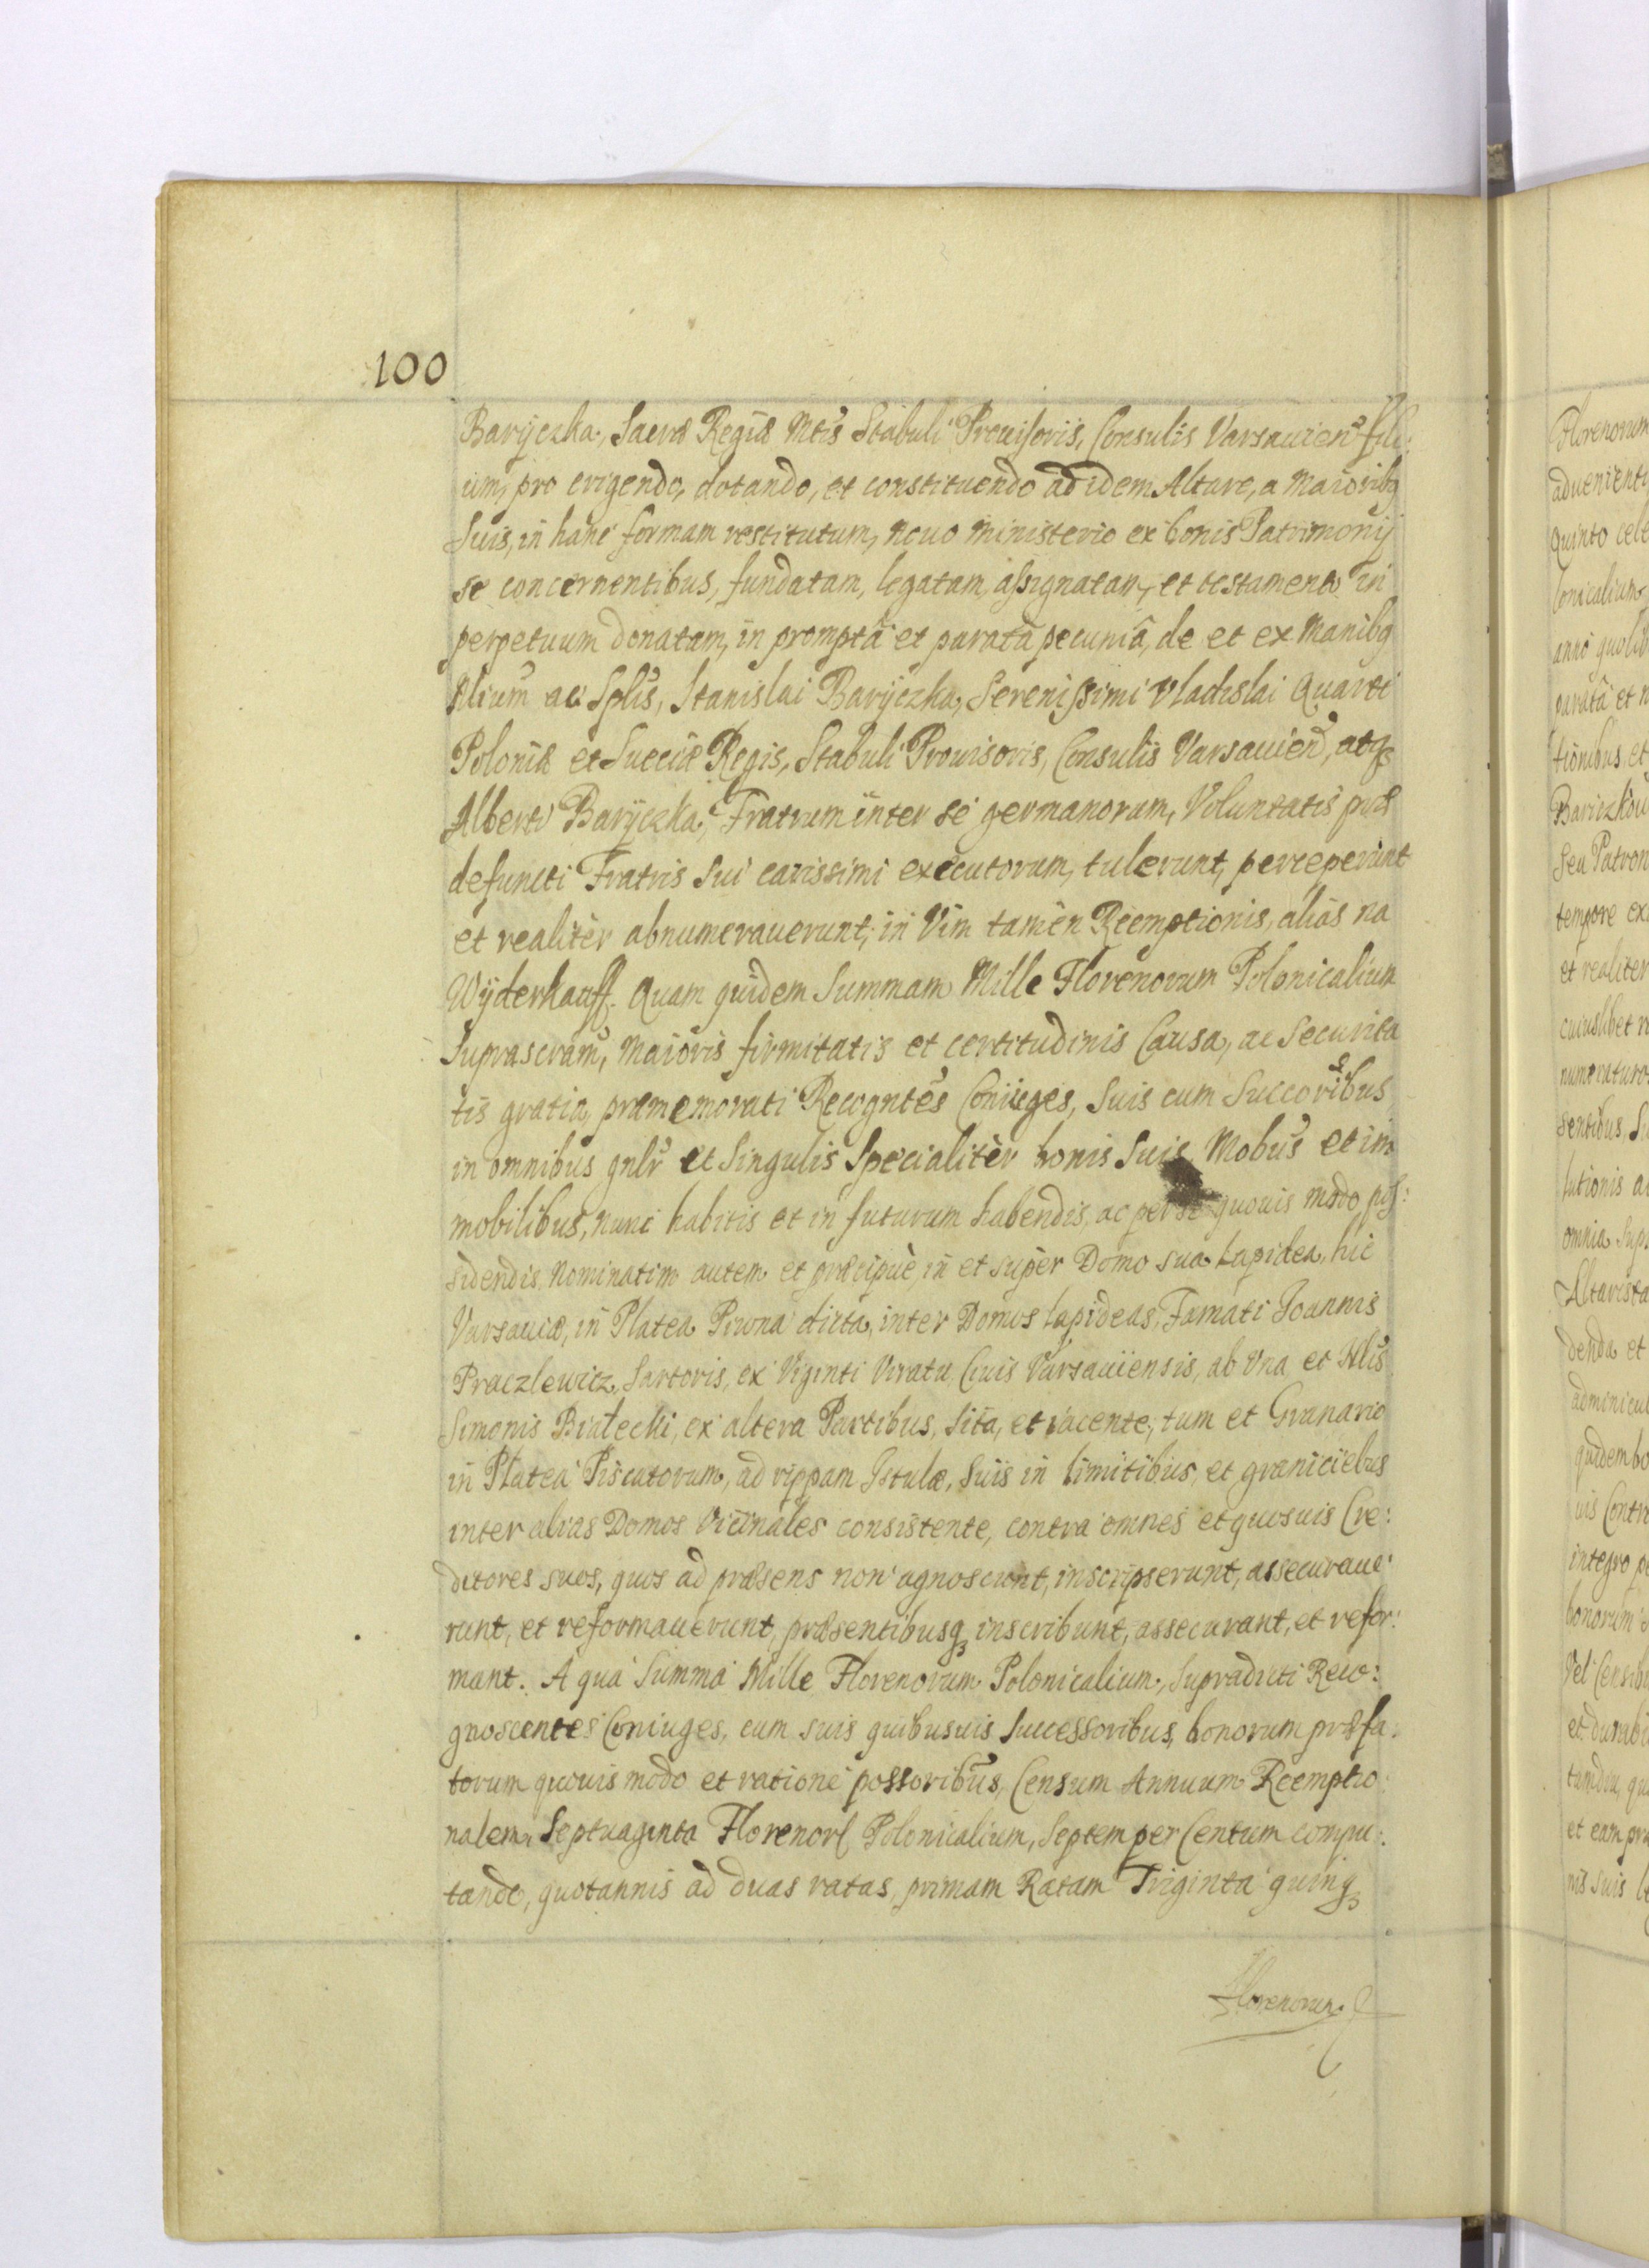 100
Baryczka, Sacræ Regiæ Mtis Stabuli Provisoris, Consulis Varsavien fili:
um, pro erigendo, dotando, et constituendo ad idem Altare, a Maioribq
Suis, in hanc formam restitutum, novo ministerio ex bonis Patrimonij
se concernentibus, fundatam, legatam, assignatam, et testamento in
perpetuum donatam, in promptâ et paratâ pecuniâ, de et ex Manibq
Nlium ac Splis, Stanislai Baryczka, Serenissimi Vladislai Quarti
Poloniæ et Sueciæ Regis, Stabuli Provisoris, Consulis Varsavien, atq3
Alberti Baryczka, Fratrum inter se germanorum, Voluntatis piæ
defuncti Fratris Sui carissimi executorum, tulerunt, perceperunt
et realitèr abnumeraverunt, in Vim tamèn Reemptionis, aliàs na
Wyderkauff. Quam quidem Summam Mille Florenorum Polonicalium
Suprascram, Maioris firmitatis et certitudinis Causa, ac Securita
tis gratia, præmemorati Recogntes Coniuges, Suis cum Succoribus
in omnibus gnlr et Singulis Specialitèr bonis Suis Mobus et im
mobilibus, nunc habitis et in futurum habendis, ac per se quovis modo pos:
sidendis Nominatim autem et præcipuè, in et super Domo sua Lapidea, hic
Varsaviæ, in Platea Piwna dicta, inter Domos Lapideas, Famati Joannis
Praczlewicz, Sartoris, ex Viginti Viratu Civis Varsaviensis, ab Vna et Nlis
Simonis Białecki, ex altera Partibus, Sita, et iacente, tum et Granario
in Platea Piscatorum, ad rippam Istulæ, Suis in limitibus, et graniciebus
inter alias Domos Vicinales consistente, contra omnes et quosuis Cre:
ditores suos, quos ad præsens non agnoscunt, inscripserunt, assecurave:
runt, et reformaverunt, præsentibusq3 inscribunt, assecurant, et refor:
mant. A qua Summa Mille Florenorum Polonicalium, Supradicti Reco:
gnoscentes Coniuges, cum suis quibusuis Successoribus, bonorum præfa:
torum quovis modo et ratione possoribus, Censum Annuum Reemptio
nalem, Septuaginta Florenor Polonicalium, Septem per Centum compu:
tando, quotannis ad duas ratas, primam Ratam Triginta quinq3
Florenorum